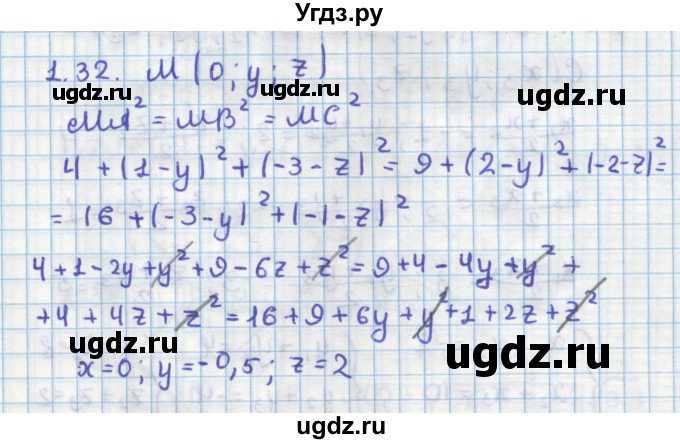 Угдз.ру
1.32. M(0; y; z)
ugdz.ru ugdz.ru
MA² = MB² = MC²
4 + (1 - y)² + (-3 - z)² = 9 + (2 - y)² + (-2 - z)² =
= 16 + (-3 - y)² + (-1 - z)²
ugdz.ru ugdz.ru
4 + 1 - 2y + y² + 9 - 6z + z² = 9 + 4 - 4y + y² +
+ 4 + 4z + z² = 16 + 9 + 6y + y² + 1 + 2z + z²
ugdz.ru ugdz.ru
x = 0; y = -0,5; z = 2
ugdz.ru ugdz.ru